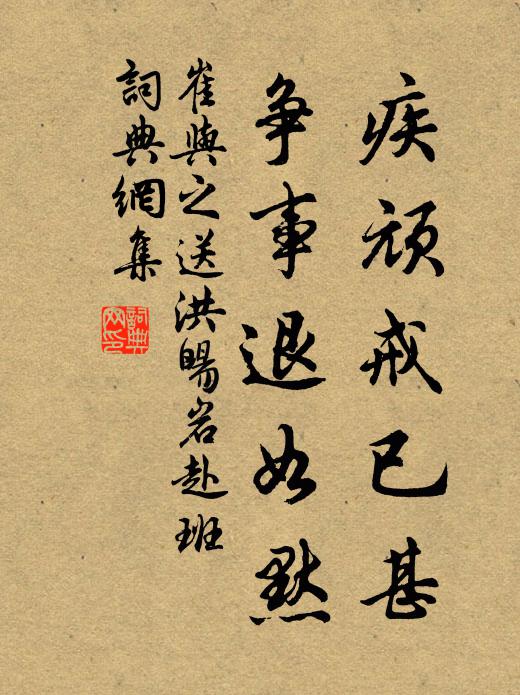 疾頑戒已甚
争事退如默
崔與之送洪暘岩赴班
詞典網集
詞典
网印